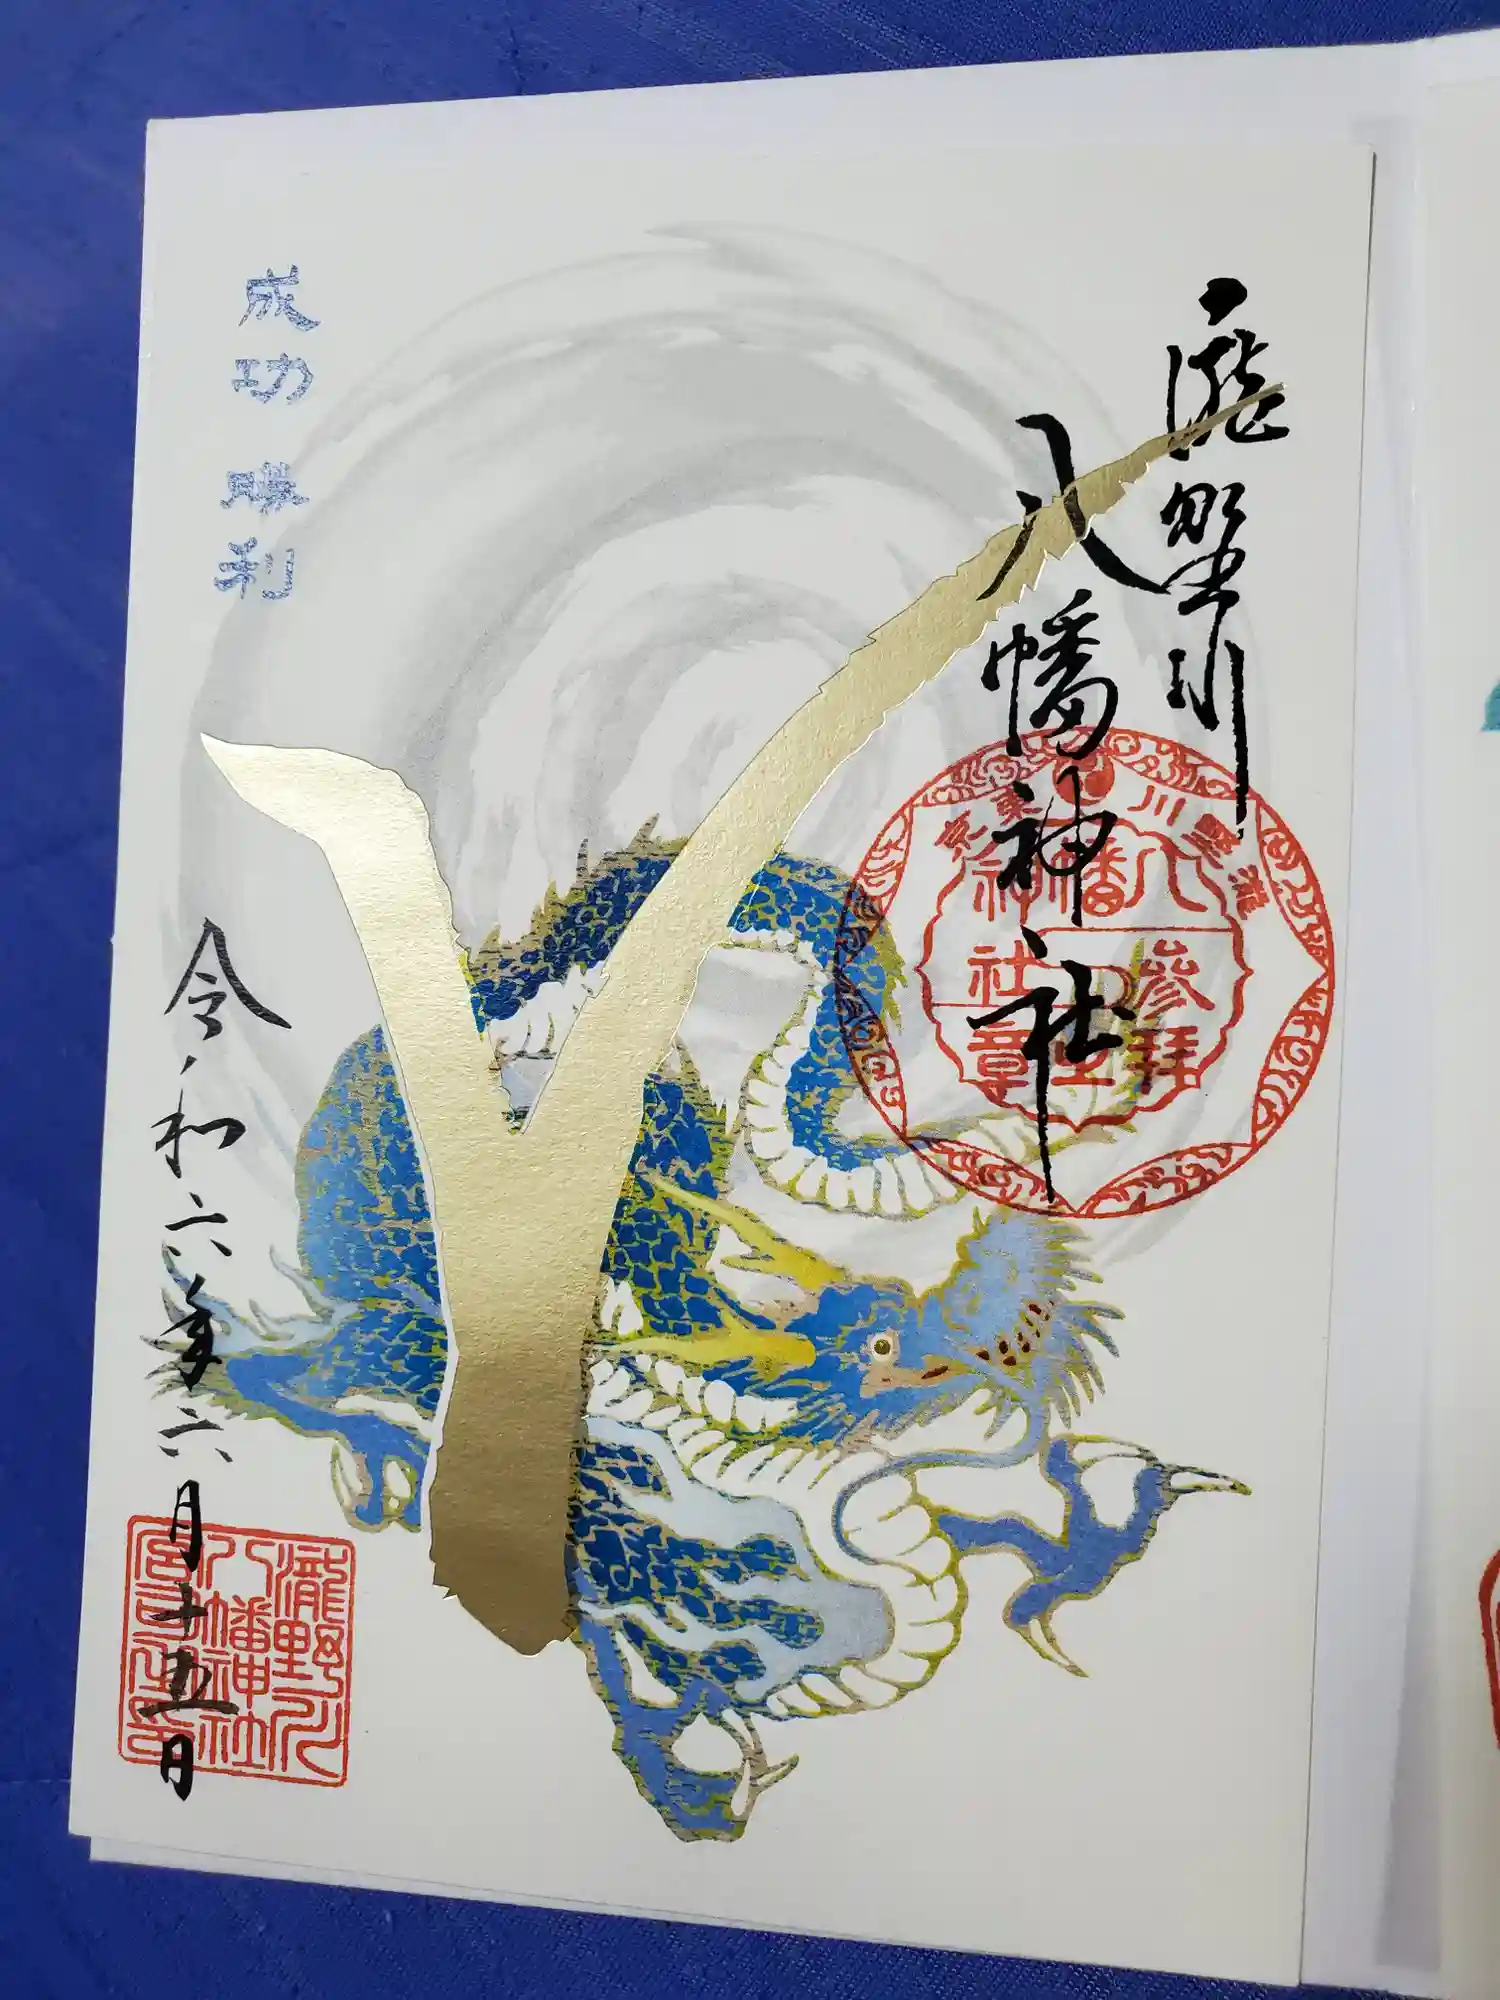 瀧野川
八幡神社
東京
瀧野川
八幡
神社章
参拜
成功
勝利
令和六年六月十五日
瀧野川
八幡神社